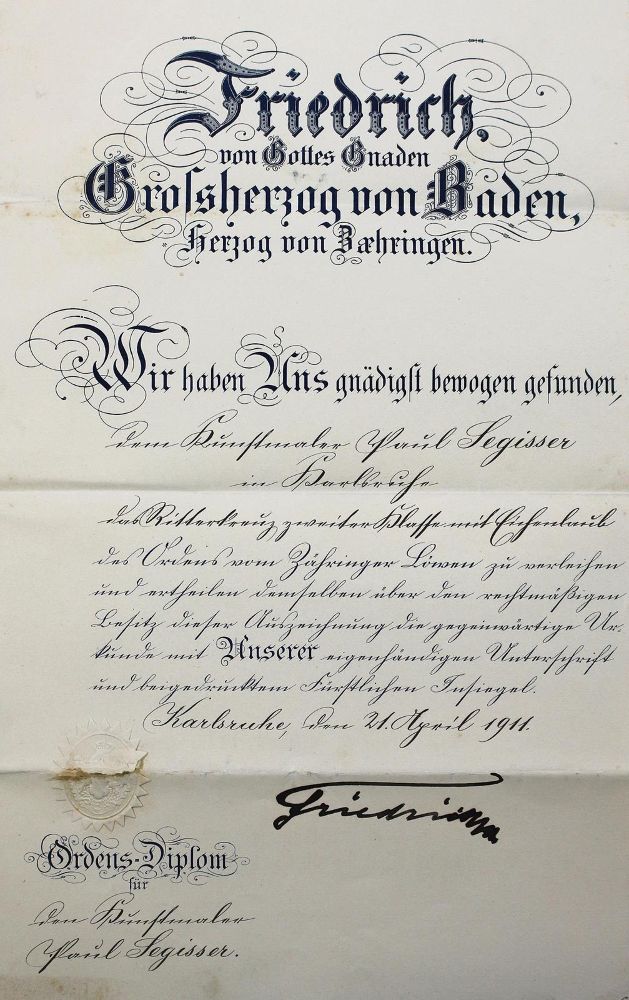 Friedrich,
von Gottes Gnaden
Grossherzog von Baden,
Herzog von Zæhringen.
Wir haben Uns gnädigst bewogen gefunden,
dem Kunstmaler Paul Segisser
in Karlsruhe
das Ritterkreuz zweiter Klasse mit Eichenlaub
des Ordens vom Zähringer Löwen zu verleihen
und ertheilen demselben über den rechtmäßigen
Besitz dieser Auszeichnung die gegenwärtige Ur-
kunde mit Unserer eigenhändigen Unterschrift
und beigedrucktem Fürstlichen Insiegel.
Karlsruhe, den 21. April 1911.
Friedrich
Ordens-Diplom
für
den Kunstmaler
Paul Segisser.